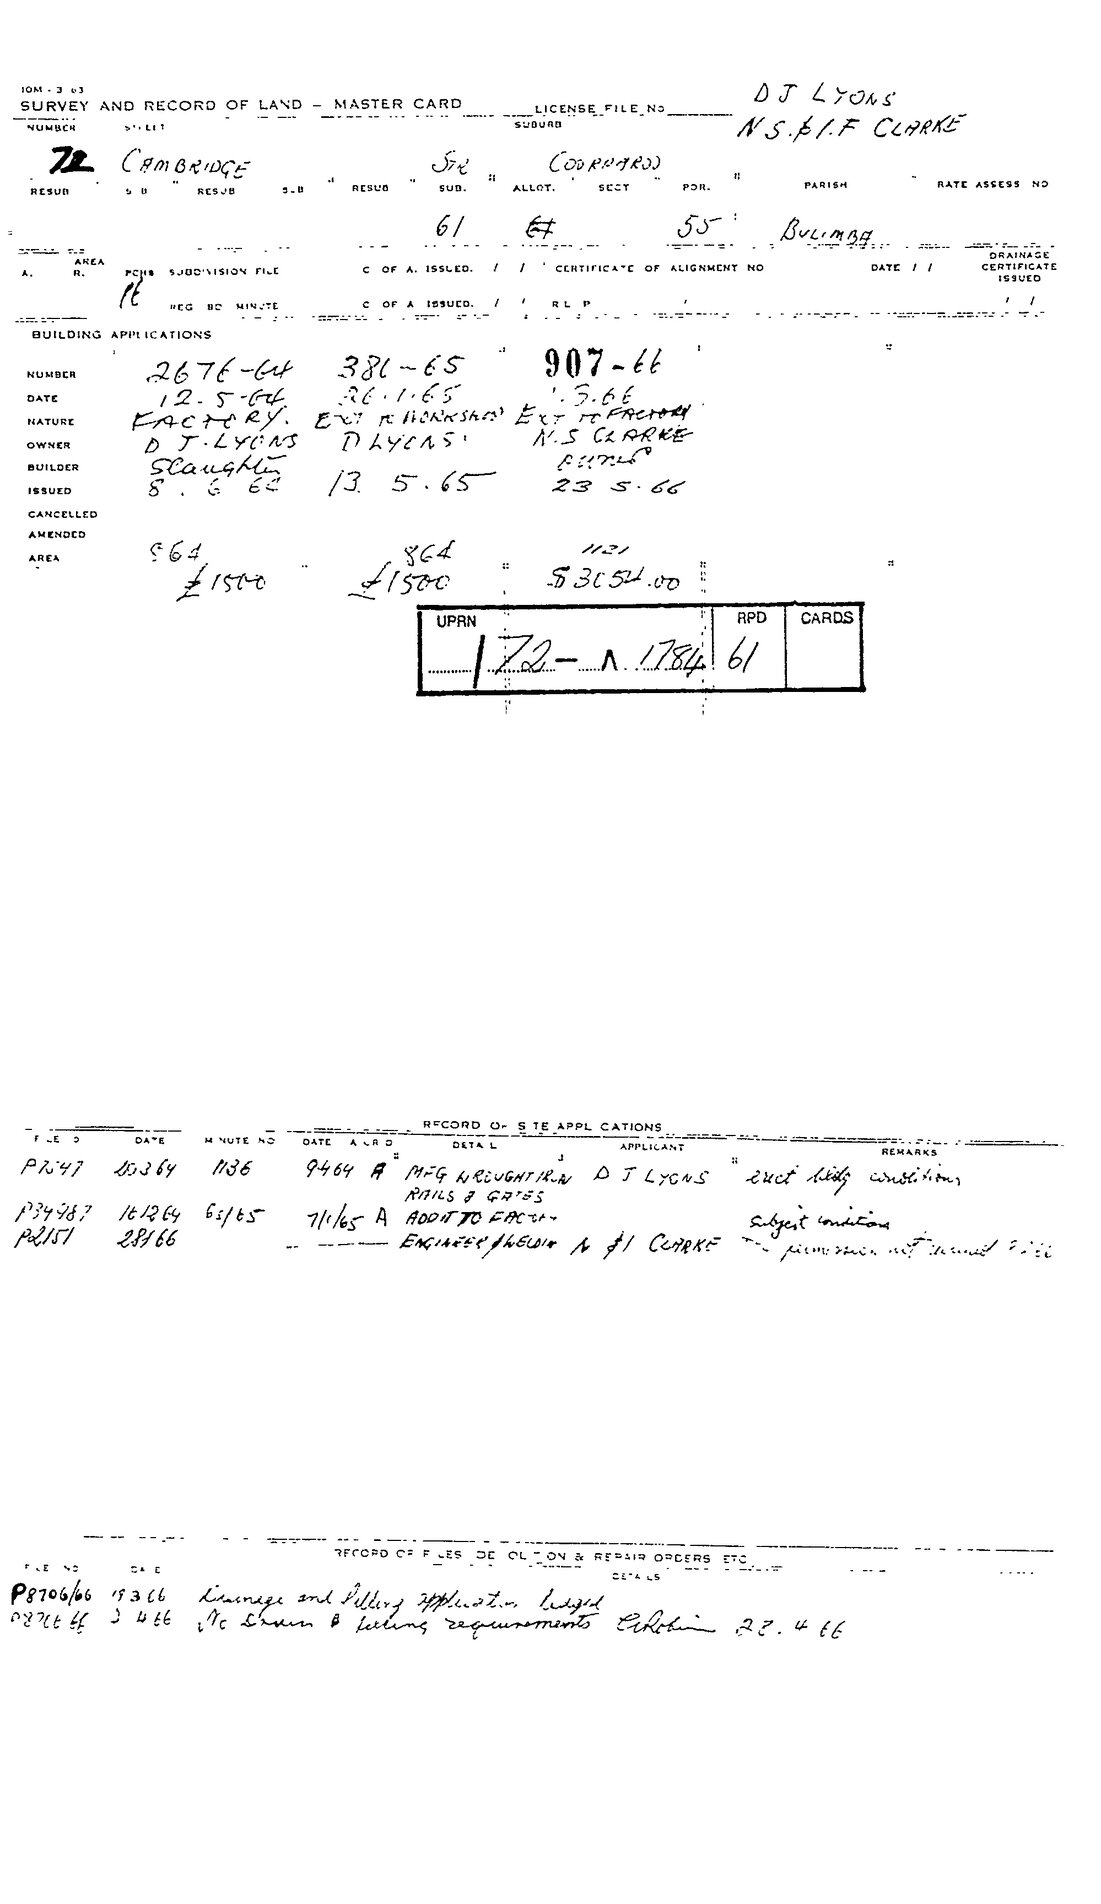 10M - 3 63
D J LYONS
SURVEY AND RECORD OF LAND - MASTER CARD LICENSE FILE NO
N S. & I. F CLARKE
NUMBER STREET SUBURB
72 CAMBRIDGE STR COORPAROO
RESUB SUB RESUB SUB RESUB SUB. ALLOT. SECT POR. PARISH RATE ASSESS NO
61 55 BULIMBA
AREA DRAINAGE
A. R. PCHS SUBDIVISION FILE C OF A. ISSUED. / / CERTIFICATE OF ALIGNMENT NO DATE / / CERTIFICATE
ISSUED
REG BD MINUTE C OF A ISSUED. / / R L P / /
BUILDING APPLICATIONS
NUMBER 2676-64 381-65 907-66
DATE 12.5-64 26.1.65 .3.66
NATURE FACTORY. EXT TO WORKSHOP EXT TO FACTORY
OWNER D J. LYONS D LYONS. N.S CLARKE
BUILDER Slaughter
ISSUED 8.6 64 13 5.65 23 5.66
CANCELLED
AMENDED
AREA 864 864 1121
£1500 £1500 $3054.00
UPRN RPD CARDS
172- 1784 61
RECORD OF SITE APPLICATIONS
FILE NO DATE MINUTE NO DATE A OR D DETAIL APPLICANT REMARKS
P7547 20364 1136 9464 A MFG WROUGHT IRON D J LYONS erect bldg conditions
RAILS & GATES
P34987 161264 65/65 7/1/65 A ADDIT TO FACTY Subject conditions
P2151 28166 ENGINEER & WELDIN N & I CLARKE permission not
RECORD OF FILES DEMOLITION & REPAIR ORDERS ETC
FILE NO DATE DETAILS
P8706/66 19 3 66 Drainage and filling application lodged
P8706 66 3 4 66 No Drain & filling requirements 22.4 66